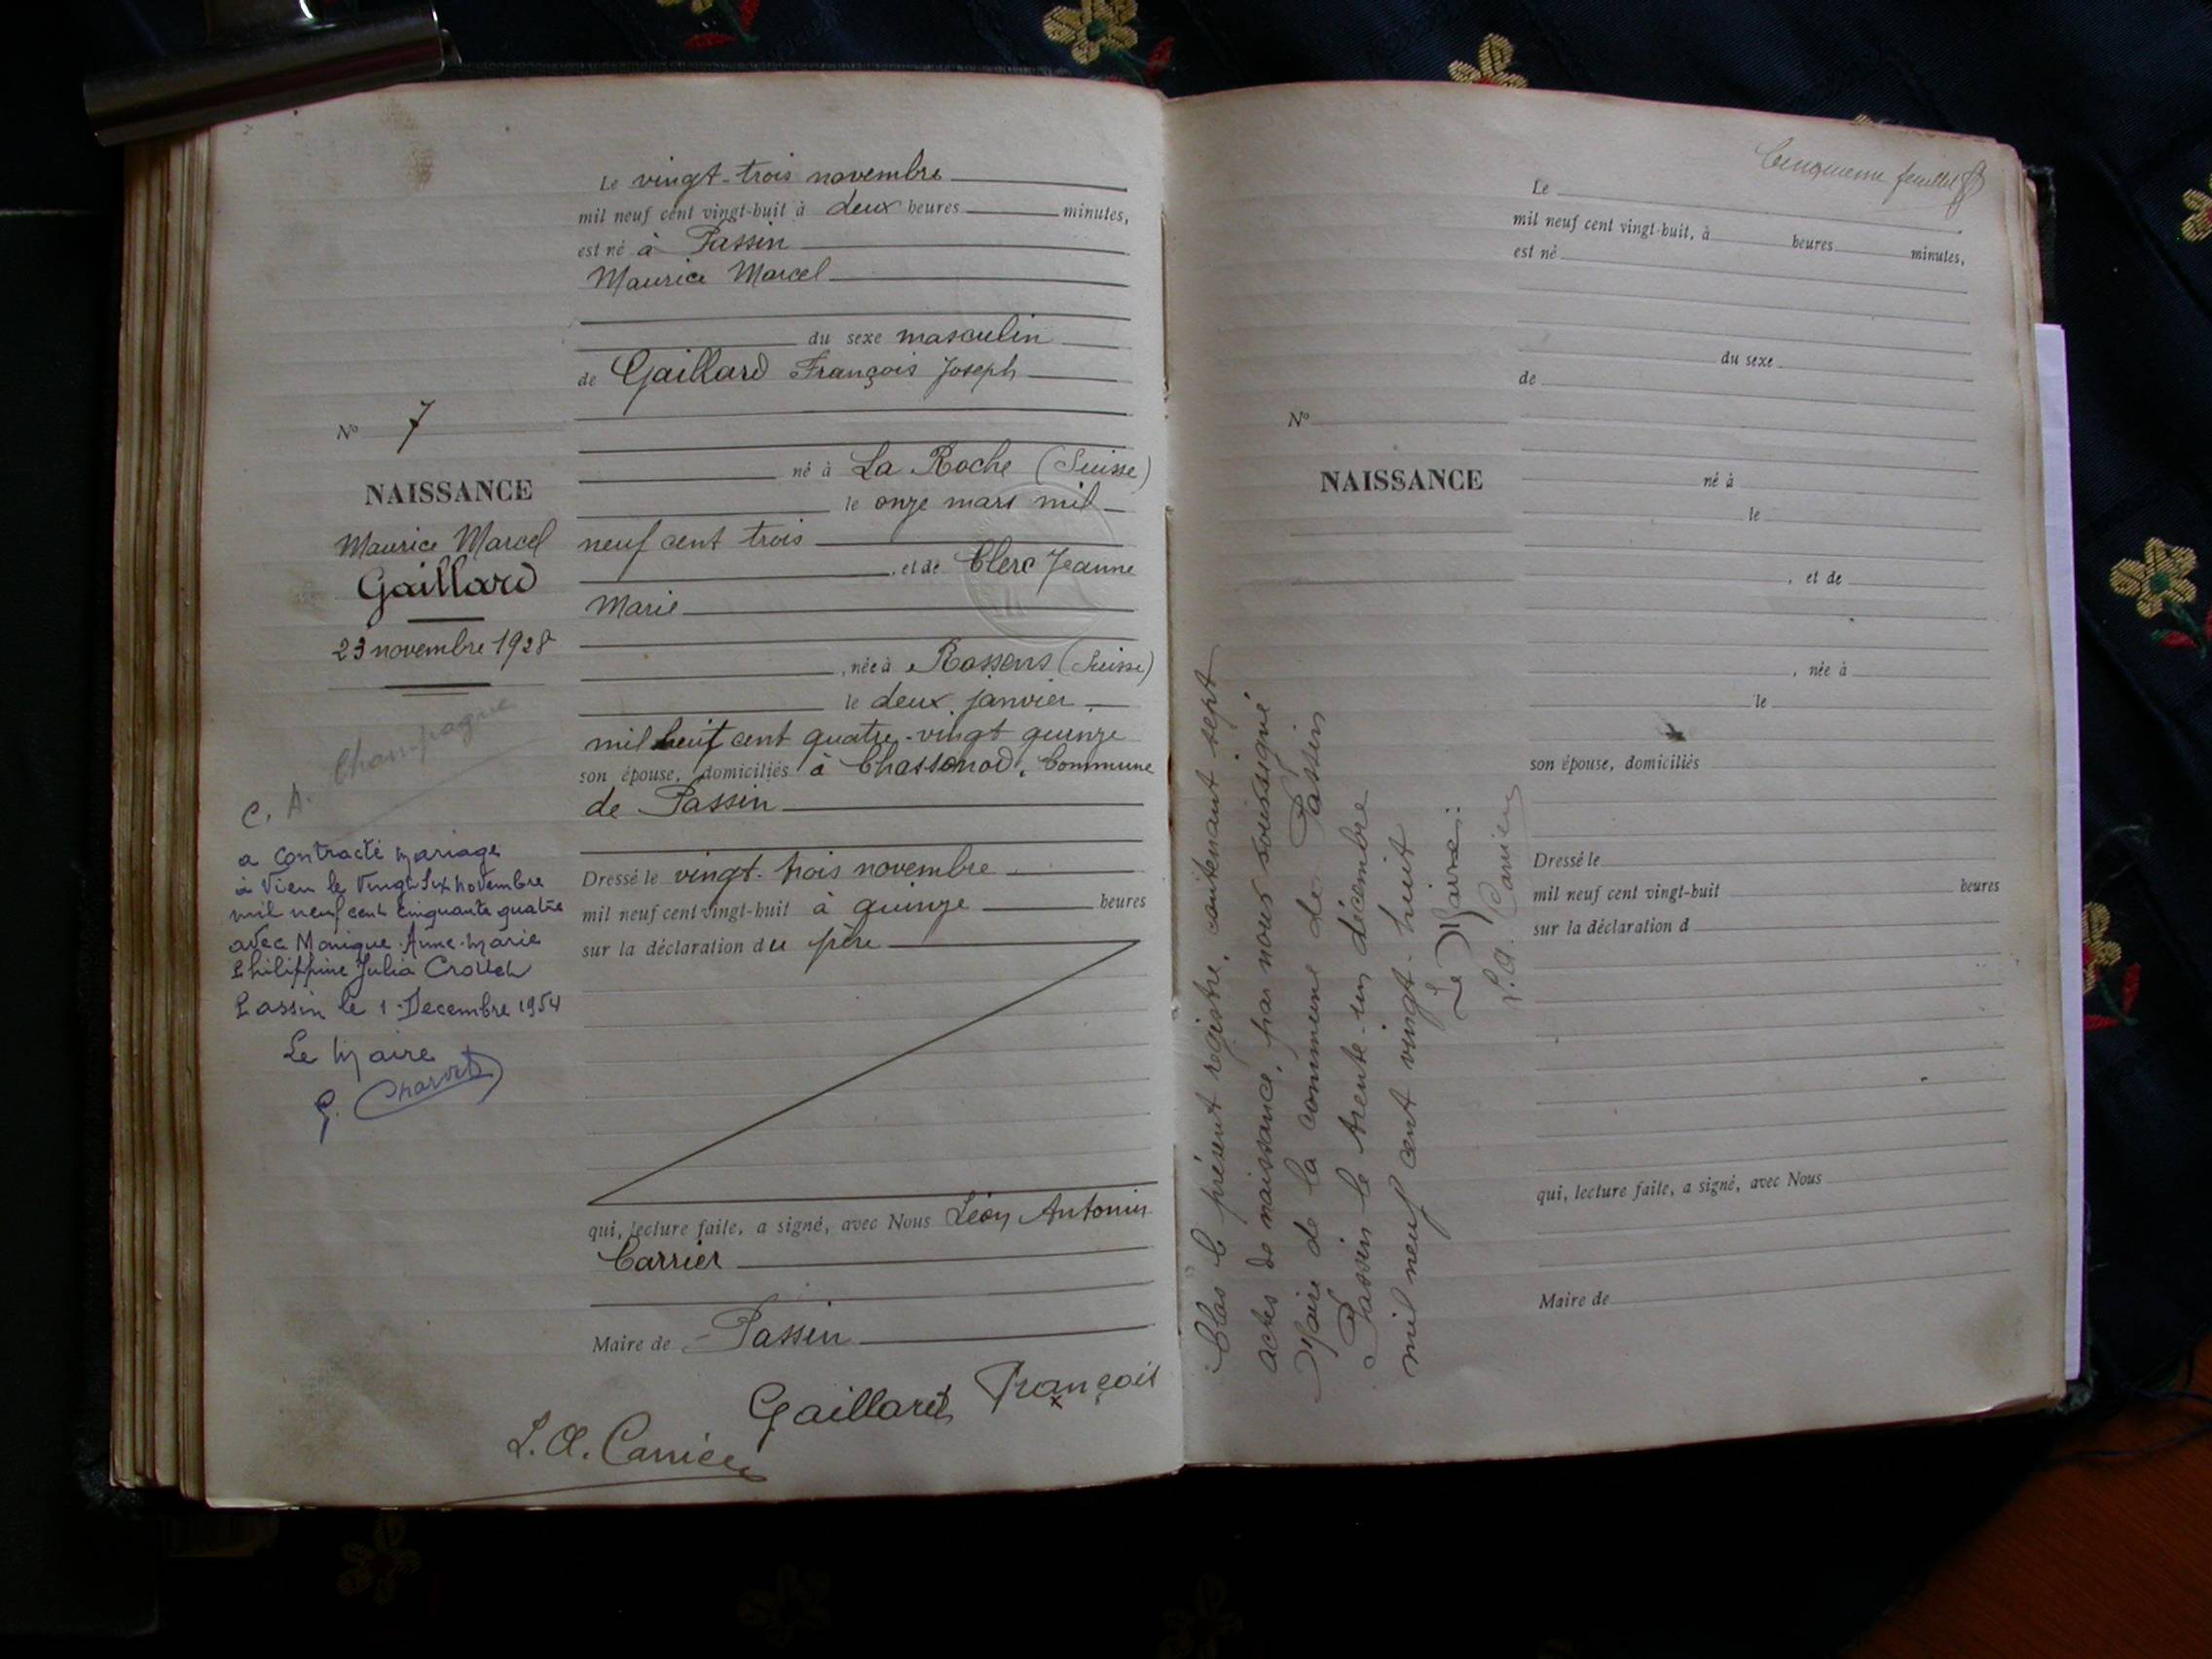 Le vingt-trois novembre
mil neuf cent vingt-huit à deux heures minutes,
est né à Passin
Maurice Marcel
du sexe masculin
de Gaillard François Joseph
né à La Roche (Suisse)
le onze mars mil
neuf cent trois
, et de Clerc Jeanne
Marie
, née à Rossens (Suisse)
le deux janvier
mil huit cent quatre-vingt quinze
son épouse, domiciliés à Chassonod, Commune
de Passin
Dressé le vingt-trois novembre
mil neuf cent vingt-huit à quinze heures
sur la déclaration du père
qui, lecture faite, a signé, avec Nous Léon Antonin
Carrier
Maire de Passin
Gaillard François
L. A. Carrier
N° 7
NAISSANCE
Maurice Marcel
Gaillard
23 novembre 1928
C. A. Champagne
a contracté mariage
à Vieu le vingt-six novembre
mil neuf cent cinquante quatre
avec Monique Anne-Marie
Philippine Julia
Passin le 1 Decembre 1954
Le Maire
Clos le présent registre, contenant sept
actes de naissance, par nous soussigné
Maire de la commune de Passin
Passin le trente-un décembre
mil neuf cent vingt-huit
Le Maire:
L. A. Carrier
Cinquième feuillet
Le
mil neuf cent vingt-huit, à heures minutes,
est né
du sexe
de
N°
NAISSANCE
né à
le
, et de
, née à
le
son épouse, domiciliés
Dressé le
mil neuf cent vingt-huit heures
sur la déclaration d
qui, lecture faite, a signé, avec Nous
Maire de